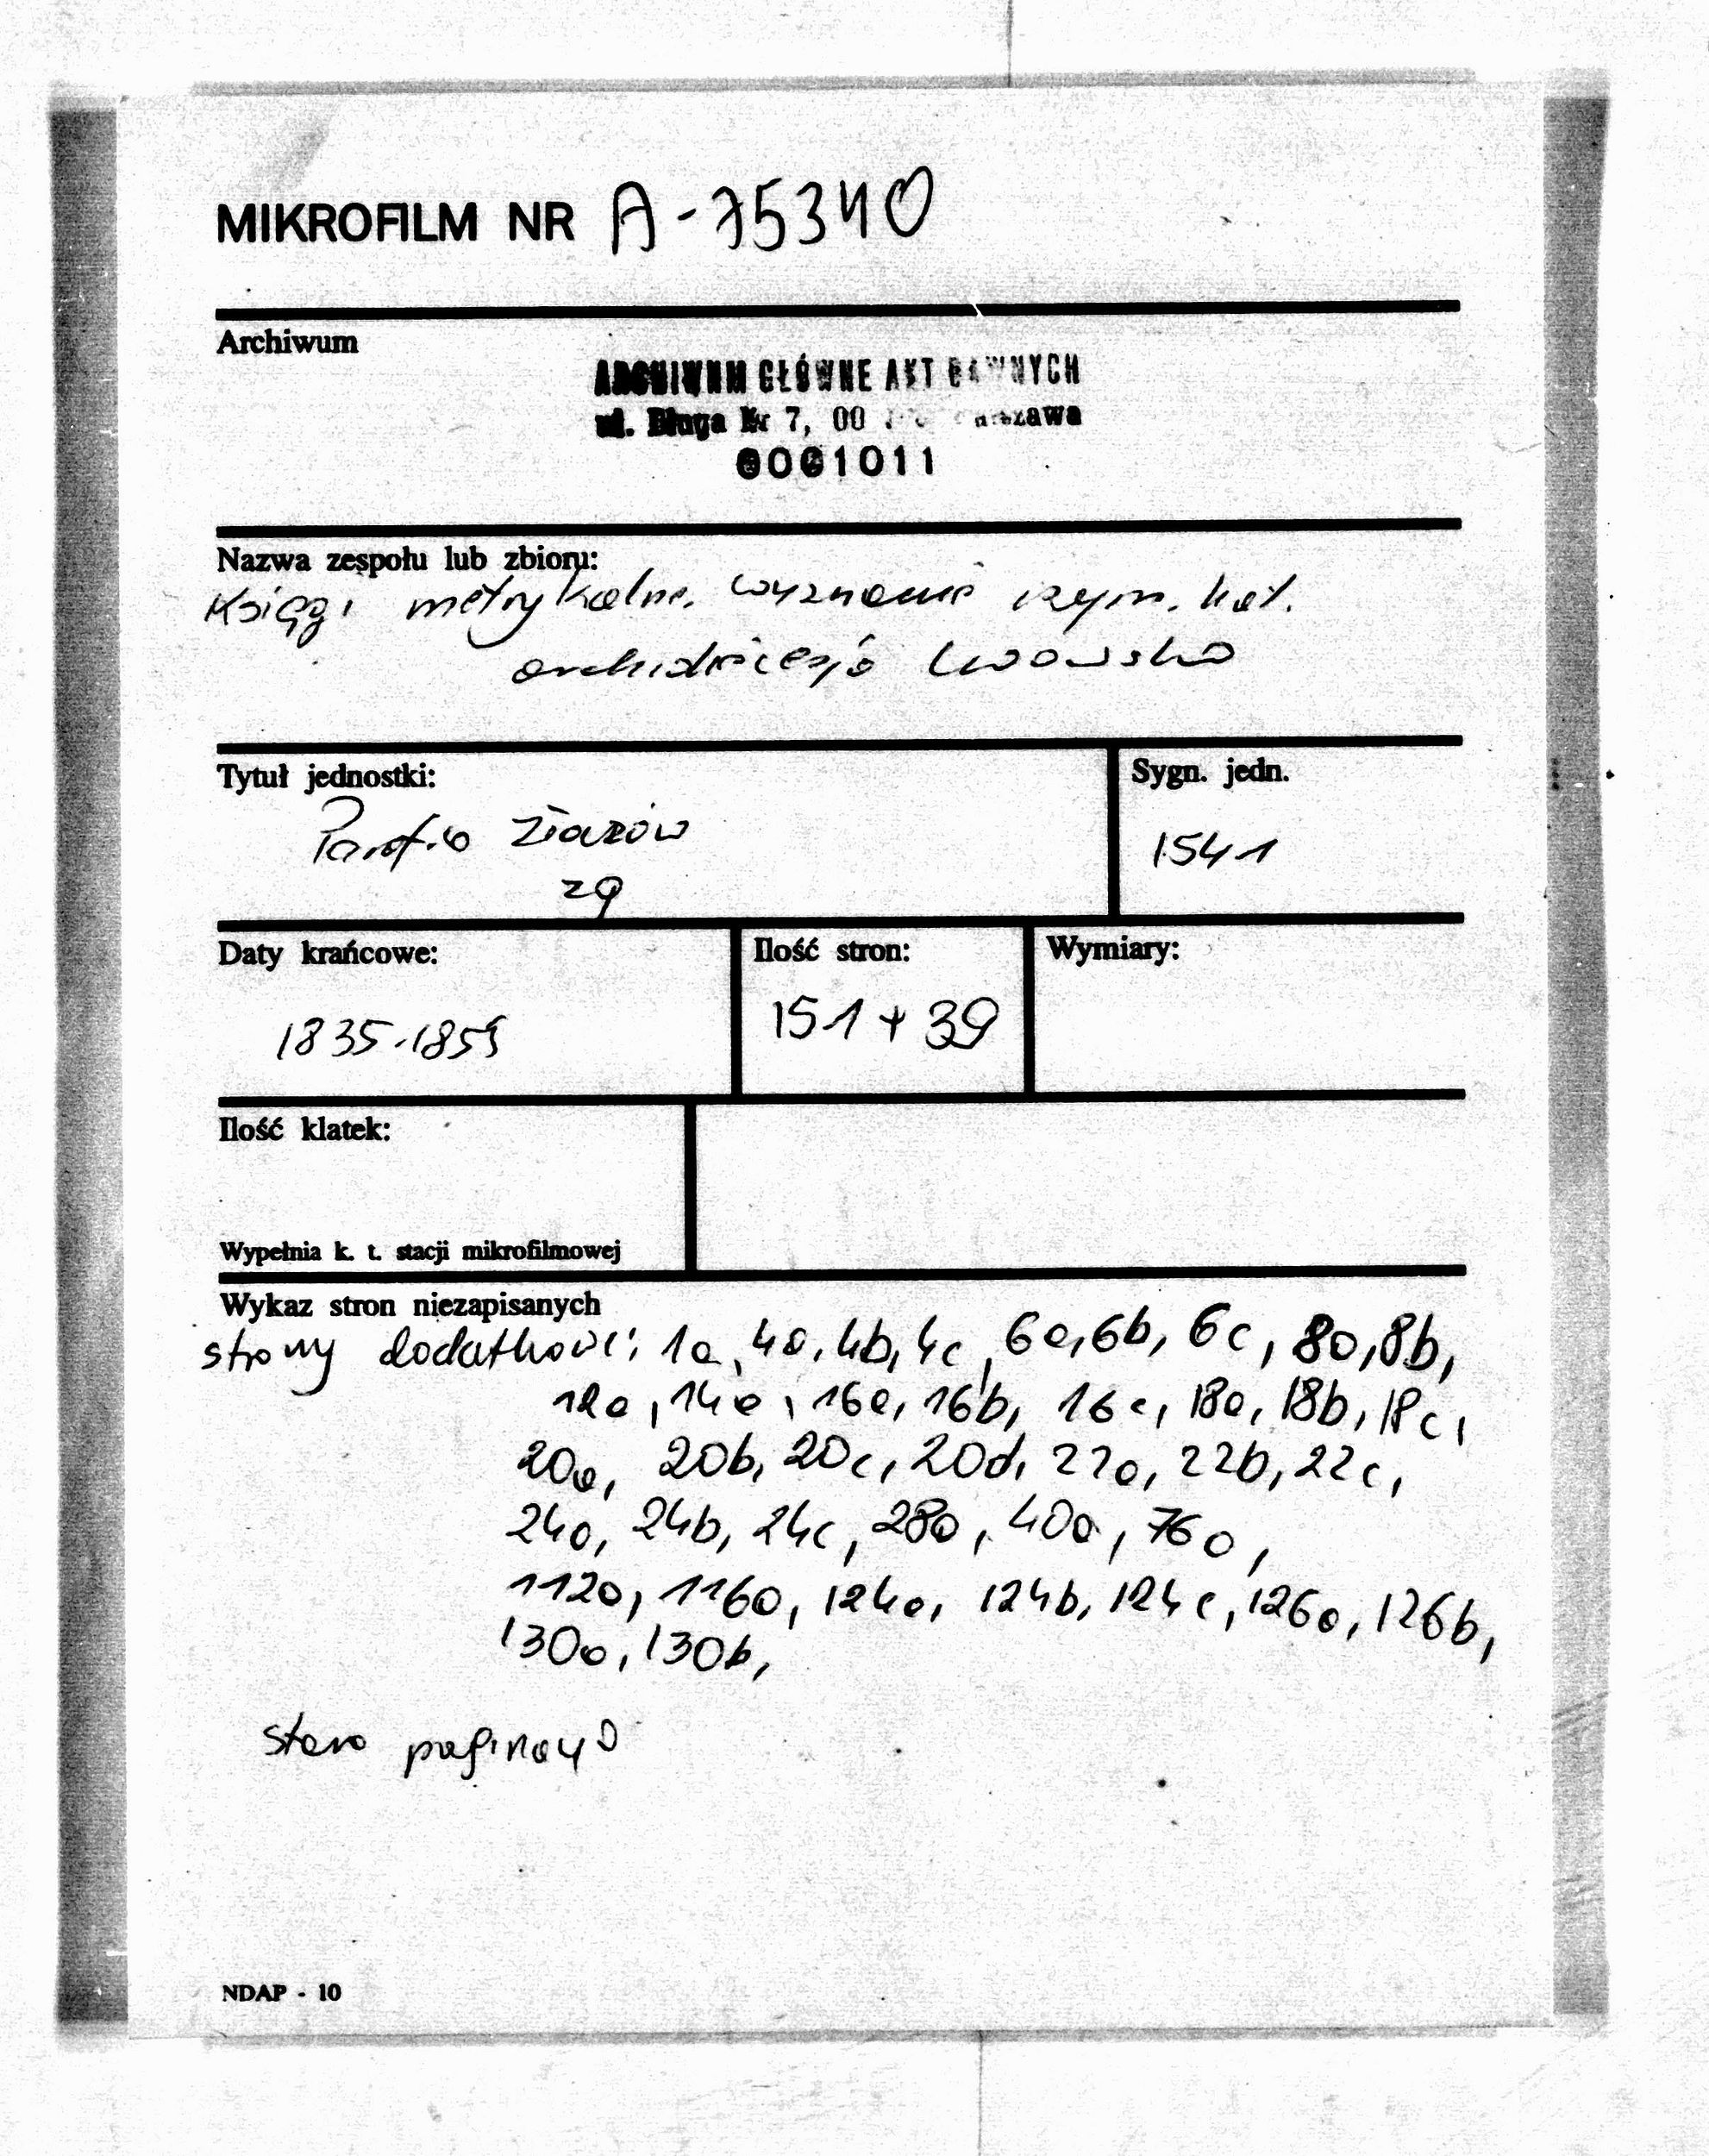 MIKROFILM NR A-75340
Archiwum
ARCHIWUM GŁÓWNE AKT DAWNYCH
ul. Długa Nr 7, 00
0001011
Nazwa zespołu lub zbioru:
Księgi metrykalne wyznania rzym. kat.
archidiecezja lwowska
Tytuł jednostki:
Sygn. jedn.
Parafia
1541
zg
Daty krańcowe:
Ilość stron:
Wymiary:
1835-1859
151 + 39
Ilość klatek:
Wypełnia k. t. stacji mikrofilmowej
Wykaz stron niezapisanych
strony dodatkowe: 1a, 4a, 4b, 4c, 6a, 6b, 6c, 8a, 8b,
12a, 14a, 16a, 16b, 16c, 18a, 18b, 18c,
20a, 20b, 20c, 20d, 22a, 22b, 22c,
24a, 24b, 24c, 28a, 40a, 76a,
112a, 116a, 124a, 124b, 124c, 126a, 126b,
130a, 130b,
stara paginacja
NDAP - 10